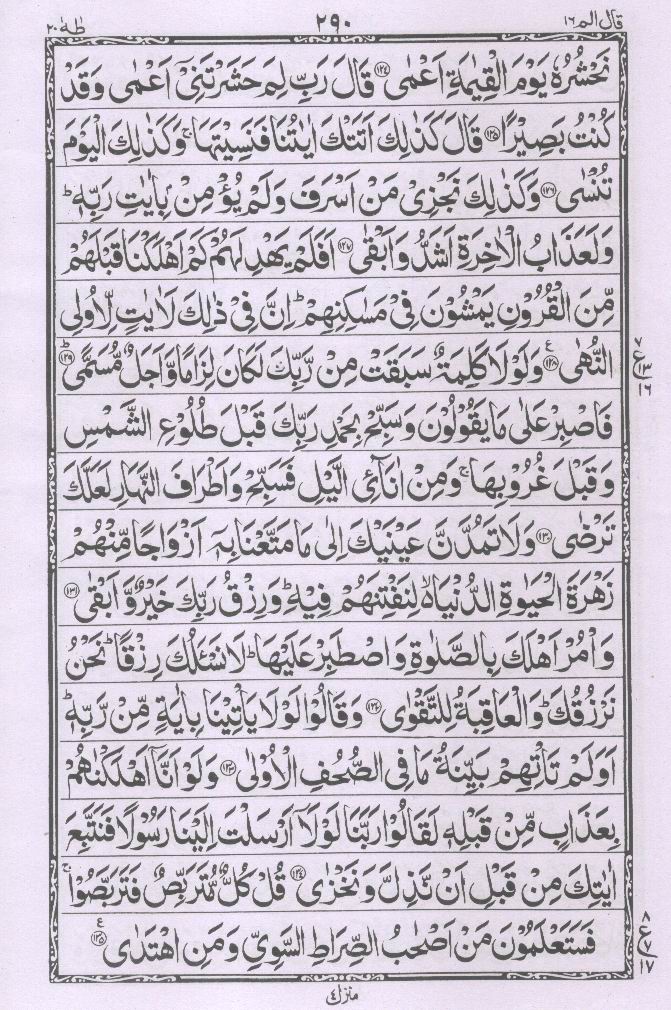 قال الم ١٦ ٢٩٠ طٰهٰ ٢٠
نَحْشُرُهٗ يَوْمَ الْقِيٰمَةِ اَعْمٰى ﴿١٢٤﴾ قَالَ رَبِّ لِمَ حَشَرْتَنِيْۤ اَعْمٰى وَقَدْ
كُنْتُ بَصِيْرًا ﴿١٢٥﴾ قَالَ كَذٰلِكَ اَتَتْكَ اٰيٰتُنَا فَنَسِيْتَهَا ۚ وَكَذٰلِكَ الْيَوْمَ
تُنْسٰى ﴿١٢٦﴾ وَكَذٰلِكَ نَجْزِيْ مَنْ اَسْرَفَ وَلَمْ يُؤْمِنْۢ بِاٰيٰتِ رَبِّهٖ ؕ
وَلَعَذَابُ الْاٰخِرَةِ اَشَدُّ وَاَبْقٰى ﴿١٢٧﴾ اَفَلَمْ يَهْدِ لَهُمْ كَمْ اَهْلَكْنَا قَبْلَهُمْ
مِّنَ الْقُرُوْنِ يَمْشُوْنَ فِيْ مَسٰكِنِهِمْ ؕ اِنَّ فِيْ ذٰلِكَ لَاٰيٰتٍ لِّاُولِي
النُّهٰى ﴿١٢٨﴾ ع وَلَوْلَا كَلِمَةٌ سَبَقَتْ مِنْ رَّبِّكَ لَكَانَ لِزَامًا وَّاَجَلٌ مُّسَمًّى ؕ ﴿١٢٩﴾
٧ ع ١٣ ١٦
فَاصْبِرْ عَلٰى مَا يَقُوْلُوْنَ وَسَبِّحْ بِحَمْدِ رَبِّكَ قَبْلَ طُلُوْعِ الشَّمْسِ
وَقَبْلَ غُرُوْبِهَا ۚ وَمِنْ اٰنَآئِ الَّيْلِ فَسَبِّحْ وَاَطْرَافَ النَّهَارِ لَعَلَّكَ
تَرْضٰى ﴿١٣٠﴾ وَلَا تَمُدَّنَّ عَيْنَيْكَ اِلٰى مَا مَتَّعْنَا بِهٖۤ اَزْوَاجًا مِّنْهُمْ
زَهْرَةَ الْحَيٰوةِ الدُّنْيَا ۙ لِنَفْتِنَهُمْ فِيْهِ ؕ وَرِزْقُ رَبِّكَ خَيْرٌ وَّاَبْقٰى ﴿١٣١﴾
وَاْمُرْ اَهْلَكَ بِالصَّلٰوةِ وَاصْطَبِرْ عَلَيْهَا ؕ لَا نَسْـَٔلُكَ رِزْقًا ؕ نَحْنُ
نَرْزُقُكَ ؕ وَالْعَاقِبَةُ لِلتَّقْوٰى ﴿١٣٢﴾ وَقَالُوْا لَوْلَا يَاْتِيْنَا بِاٰيَةٍ مِّنْ رَّبِّهٖ ؕ
اَوَلَمْ تَاْتِهِمْ بَيِّنَةُ مَا فِي الصُّحُفِ الْاُوْلٰى ﴿١٣٣﴾ وَلَوْ اَنَّاۤ اَهْلَكْنٰهُمْ
بِعَذَابٍ مِّنْ قَبْلِهٖ لَقَالُوْا رَبَّنَا لَوْلَاۤ اَرْسَلْتَ اِلَيْنَا رَسُوْلًا فَنَتَّبِعَ
اٰيٰتِكَ مِنْ قَبْلِ اَنْ نَّذِلَّ وَنَخْزٰى ﴿١٣٤﴾ قُلْ كُلٌّ مُّتَرَبِّصٌ فَتَرَبَّصُوْا ۚ
فَسَتَعْلَمُوْنَ مَنْ اَصْحٰبُ الصِّرَاطِ السَّوِيِّ وَمَنِ اهْتَدٰى ﴿١٣٥﴾ ع
٨ ع ٧ ١٧
منزل ٤